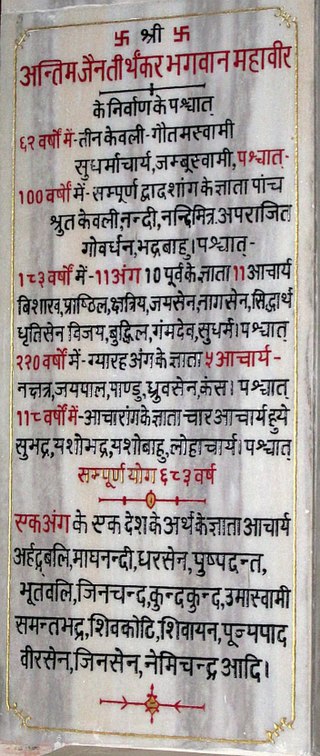 卐 श्री 卐
अन्तिम जैन तीर्थंकर भगवान महावीर
के निर्वाण के पश्चात्
६२ वर्षों में-तीन केवली-गौतमस्वामी
सुधर्माचार्य, जम्बूस्वामी, पश्चात्-
100 वर्षों में- सम्पूर्ण द्वादशांग के ज्ञाता पांच
श्रुत केवली, नन्दी, नन्दिमित्र, अपराजित
गोवर्धन, भद्रबाहु। पश्चात्-
१८३ वर्षों में-11 अंग 10 पूर्व के ज्ञाता 11 आचार्य
बिशारव, प्राष्ठिल, क्षत्रिय, जयसेन, नागसेन, सिद्धार्थ
धृतिसेन विजय, बुद्धिल, गंमदेव, सुधर्म। पश्चात्
२२० वर्षों में- ग्यारह अंग के ज्ञाता ५ आचार्य -
नक्षत्र, जयपाल, पाण्डु, ध्रुवसेन, कंस। पश्चात्
11८ वर्षों में- आचारांग के ज्ञाता चार आचार्य हुये
सुभद्र, यशोभद्र, यशोबाहु, लोहाचार्य। पश्चात्
सम्पूर्ण योग ६८३ वर्ष
एक अंग के एक देश के अर्थ के ज्ञाता आचार्य
अर्हद्बलि, माघनन्दी, धरसेन, पुष्पदन्त,
भूतवलि, जिनचन्द, कुन्दकुन्द, उमास्वामी
समन्तभद्र, शिवकोटि, शिवायन, पूज्यपाद
वीरसेन, जिनसेन, नेमिचन्द्र आदि।